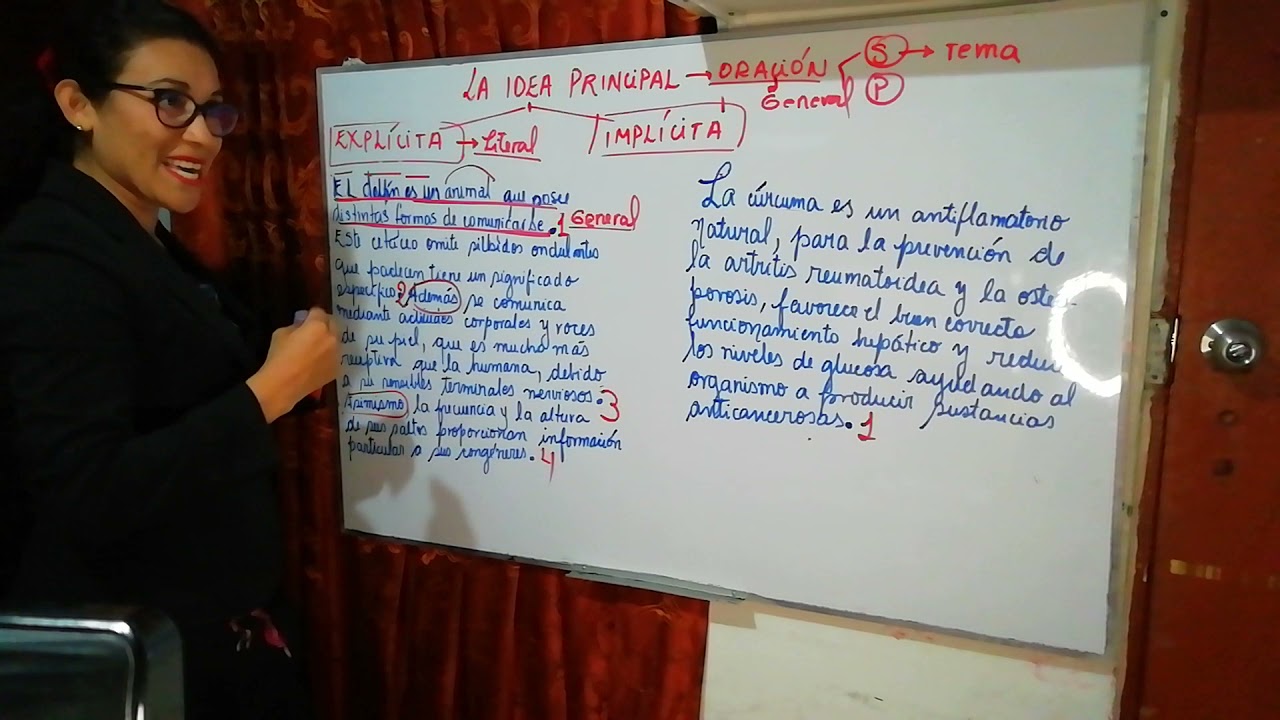 LA IDEA PRINCIPAL → ORACIÓN S → Tema
General P
EXPLÍCITA → Literal
IMPLÍCITA
El delfín es un animal que posee
distintas formas de comunicarse. 1 General
Este cetáceo emite silbidos ondulantes
que padecen tiene un significado
específico. 2 Además, se comunica
mediante actitudes corporales y roces
de su piel, que es mucho más
receptiva que la humana, debido
a sus sensibles terminales nerviosos. 3
Asimismo la frecuencia y la altura
de sus saltos proporcionan información
particular a sus congéneres. 4
La cúrcuma es un antiflamatorio
natural, para la prevención de
la artritis reumatoidea y la osteo
porosis, favorece el buen correcto
funcionamiento hepático y reduce
los niveles de glucosa ayudando al
organismo a producir sustancias
anticancerosas. 1